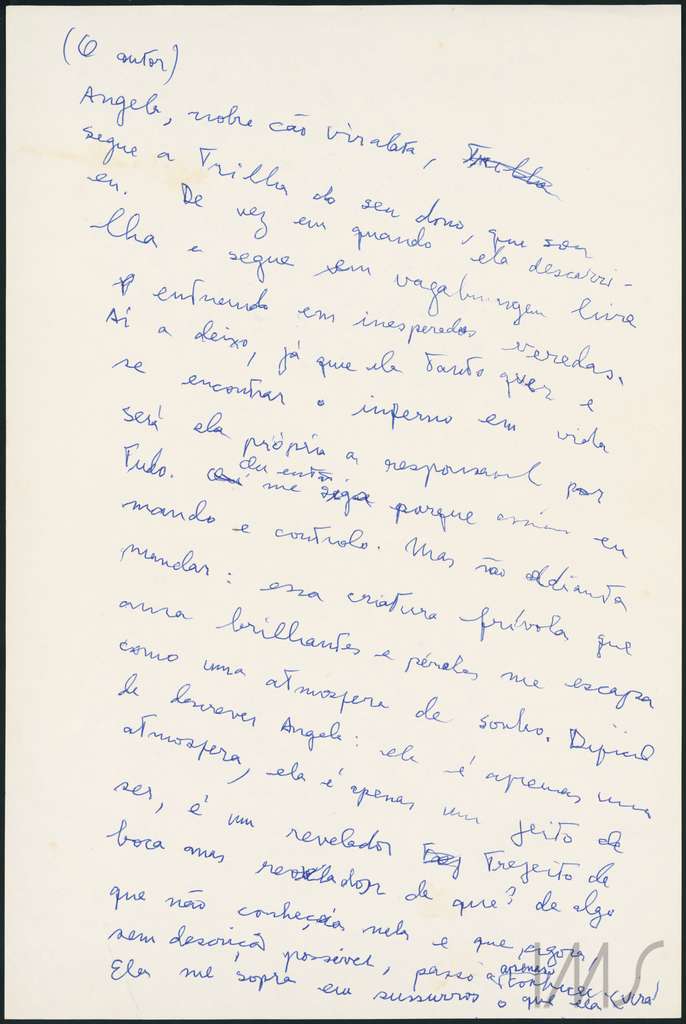 (O autor)
Angela, nobre cão viralata, Trilha
segue a Trilha do seu dono, que sou
eu. De vez em quando ela descarri-
lha e segue em vagabungem livre
entrando em inesperadas veredas.
Aí a deixo, já que ela tanto quer e
se encontrar o inferno em vida
será ela própria a responsavel por
Tudo. ela então me siga porque assim eu
mando e controlo. Mas não adianta
mandar: essa criatura frívola que
ama brilhantes e pérolas me escapa
como uma atmosfera de sonho. Dificil
de descrever Angela: ela é apenas uma
atmosfera, ela é apenas um jeito de
ser, é um revelador Trejeito de
boca mas revelador de que? de algo
que não conhecia nela e que agora,
sem descrição possível, passo a apenas conhecer.
Ela me sopra em sussurros o que ela
IMS